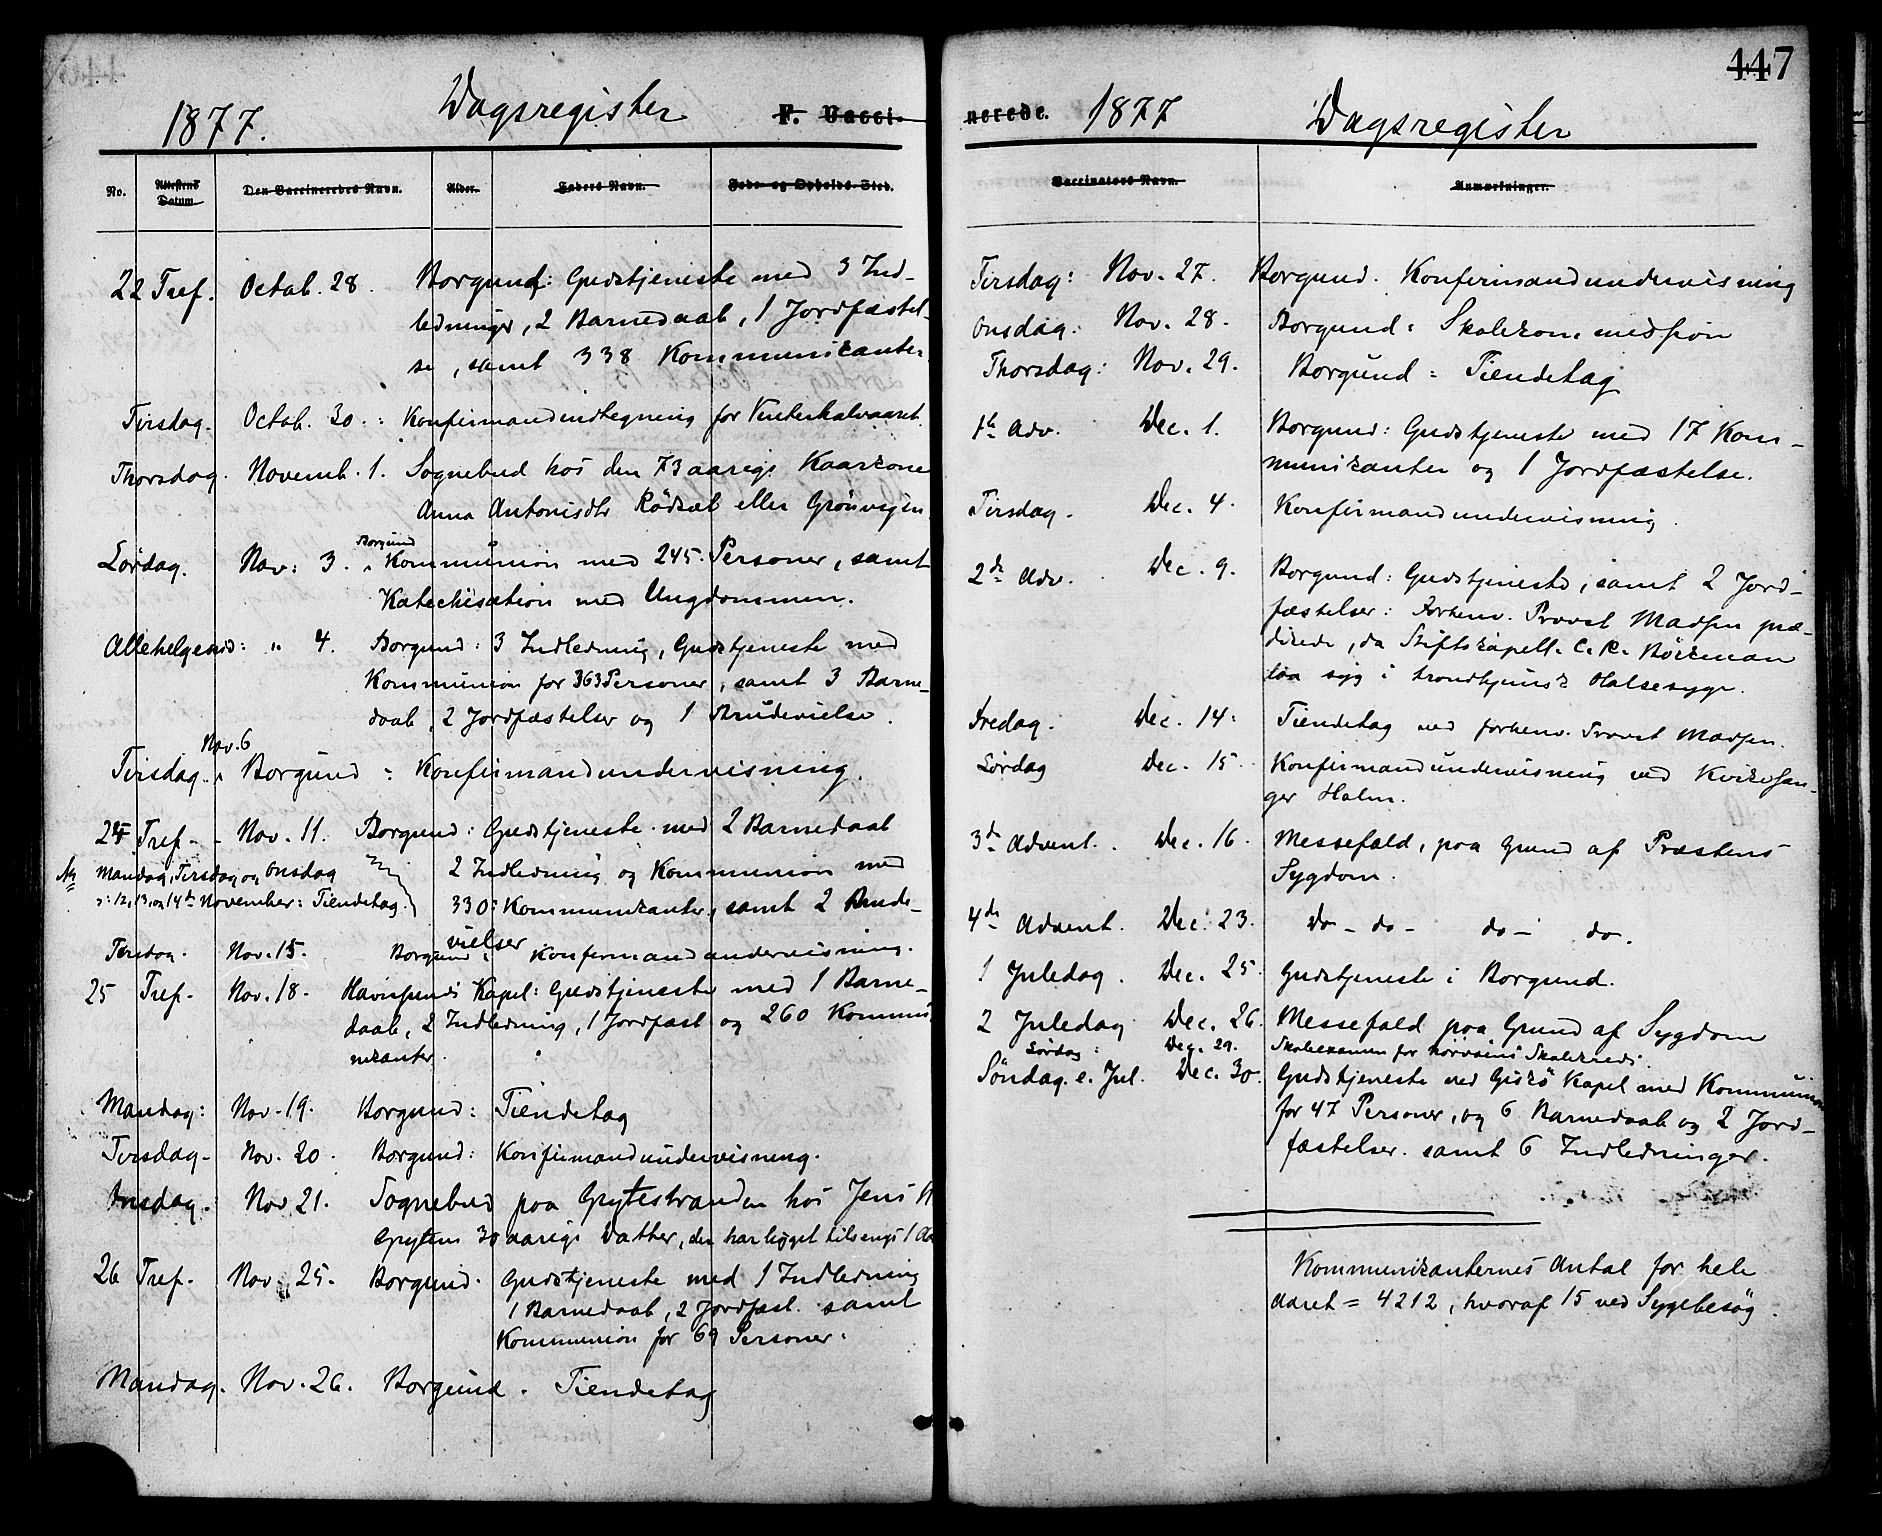 447
1877. Dagsregister F. Vacci-
No. Attestens Datum Den Vaccineredes Navn. Alder. Faders Navn. Føde- og Opholds-Sted.
22 Tref. Octob. 28. Borgund: Gudstjeneste med 3 Ind-
ledninger, 2 Barnedaab, 1 Jordfæstel-
se, samt 338 Kommunikanter
Tirsdag. Octob. 30. : Konfirmandindtegning for Vinterhalvaaret.
Thorsdag. Novemb. 1. Sognebud hos den 73 aarige Kaarkone
Anna Antonisdtr Rødsæt eller Grønvigen
Lørdag. Nov: 3. Borgund
Kommunion med 245 Personer, samt
Katechisation med Ungdommen.
Allehelgensd: " 4. Borgund: 3 Indledning, Gudstjeneste med
Kommunion for 363 Personer, samt 3 Barne-
daab, 2 Jordfæstelser og 1 Brudevielse.
Nov. 6
Tirsdag. Borgund : Konfirmandundervisning.
24 Tref. - Nov. 11. Borgund: Gudstjeneste med 2 Barnedaab
2 Indledning og Kommunion med
330 Kommunikanter, samt 2 Brude-
vielser
Mandag, Tirsdag og Onsdag
: 12, 13, og 14de November: Tiendetag.
Torsdag. Nov. 15. Borgund: Konfirmandundervisning.
25 Tref. Nov. 18. Havnsunds Kapel: Gudstjeneste med 1 Barne-
daab, 2 Indledning, 1 Jordfæst og 260 Kommu-
nikanter.
Mandag: Nov. 19. Borgund: Tiendetag
Tirsdag. Nov. 20. Borgund: Konfirmandundervisning.
Onsdag. Nov 21. Sognebud paa Grytestranden hos Jens
Grytens 30 aarige Datter, der har ligget tilsengs 1 Aar
26 Tref. Nov. 25. Borgund. Gudstjeneste med 1 Indledning
1 Barnedaab, 2 Jordfæst. samt
Kommunion for 69 Personer.
Mandag. Nov. 26. Borgund. Tiendetag
nerede. 1877 Dagsregister
Vaccinators Navn. Anmærkninger.
Tirsdag: Nov. 27. Borgund. Konfirmandundervisning
Onsdag: Nov. 28. Borgund: Skolekommission
Thorsdag: Nov. 29. Borgund: Tiendetag
1te Adv. Dec. 1. Borgund: Gudstjeneste med 17 Kom-
munikanter og 1 Jordfæstelse.
Tirsdag. Dec. 4. Konfirmandundervisning.
2de Adv. Dec. 9. Borgund: Gudstjeneste, samt 2 Jord-
fæstelser: Forhenv. Provst Madsen præ-
dikede, da Stiftskapell. C. R. Böckman
laa syg i trondhjemsk Halsesyge.
Fredag. Dec. 14. Tiendetag ved forhenv. Provst Madsen.
Lørdag Dec. 15. Konfirmandundervisning ved Kirkesan-
ger Holm.
3de Advent. Dec. 16. Messefald, paa Grund af Præstens
Sygdom.
4de Advent. Dec. 23. Do - do - do - do.
1 Juledag. Dec. 25. Gudstjeneste i Borgund.
2 Juledag Dec. 26. Messefald paa Grund af Sygdom
Lørdag: Dec. 29. Skoleexamen for Skolekreds.
Søndag. e. Jul. Dec. 30. Gudstjeneste ved Giskö Kapel med Kommunion
for 47 Personer, og 6 Barnedaab og 2 Jord-
fæstelser. samt 6 Indledninger.
Kommunikanternes Antal for hele
Aaret = 4212, hvoraf 15 ved Sygebesøg.